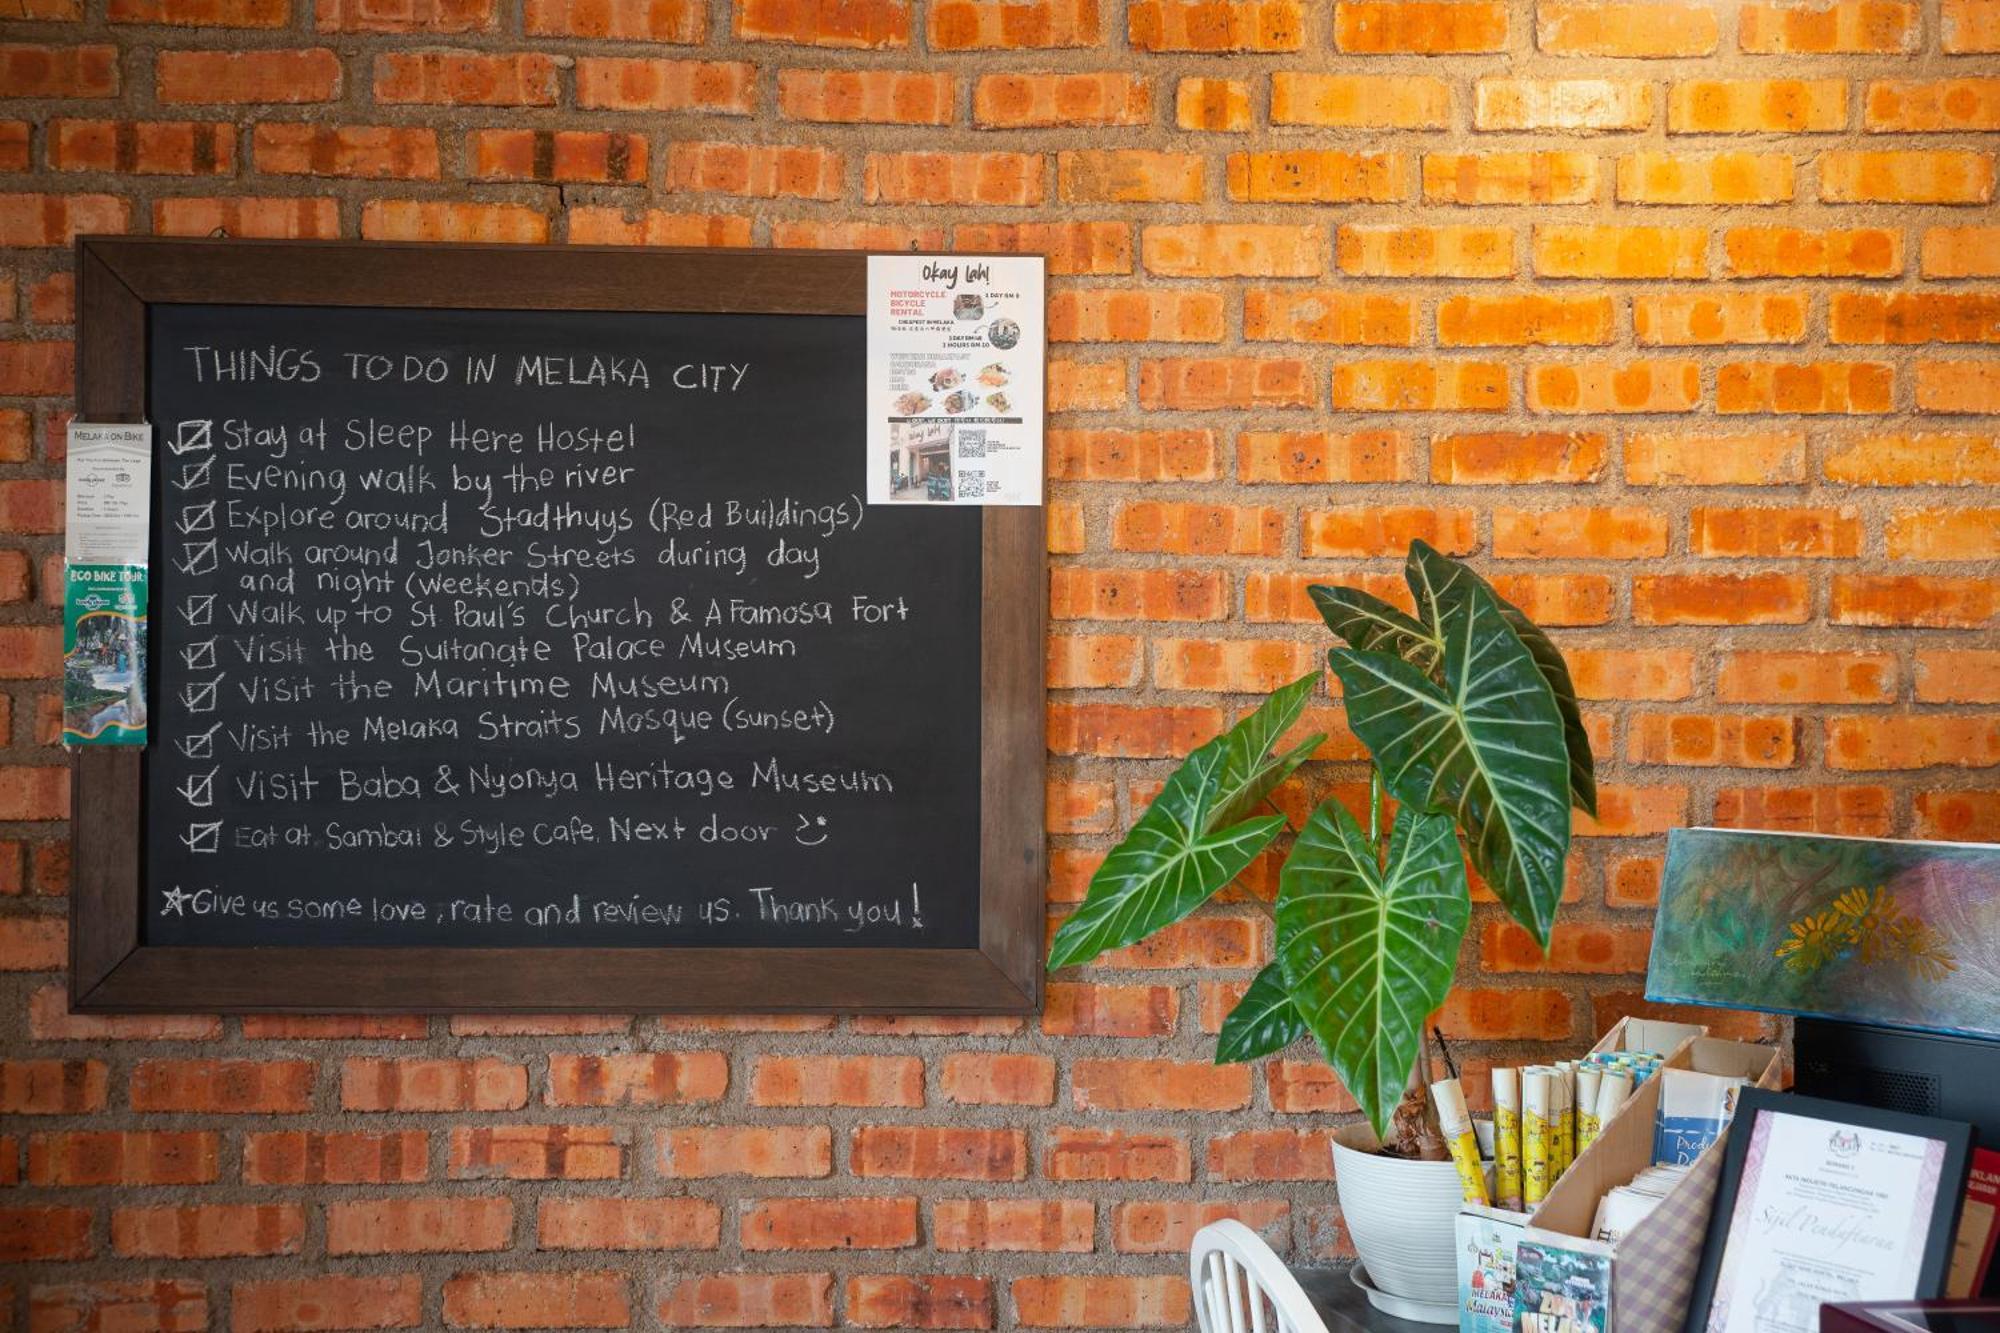 THINGS TO DO IN MELAKA CITY
Stay at Sleep Here Hostel
Evening walk by the river
Explore around Stadthuys (Red Buildings)
Walk around Jonker Streets during day
and night (weekends)
Walk up to St. Paul's Church & A Famosa Fort
Visit the Sultanate Palace Museum
Visit the Maritime Museum
Visit the Melaka Straits Mosque (sunset)
Visit Baba & Nyonya Heritage Museum
Eat at Sambal & Style Cafe, Next door
Give us some love, rate and review us. Thank you!
Okay lah!
MOTORCYCLE
BICYCLE
RENTAL
CHEAPEST IN MELAKA
MELAKA ON BIKE
ECO BIKE TOUR
AKTA INDUSTRI PELANCONGAN 1992
Sijil Pendaftaran
MELAKA
Malaysia